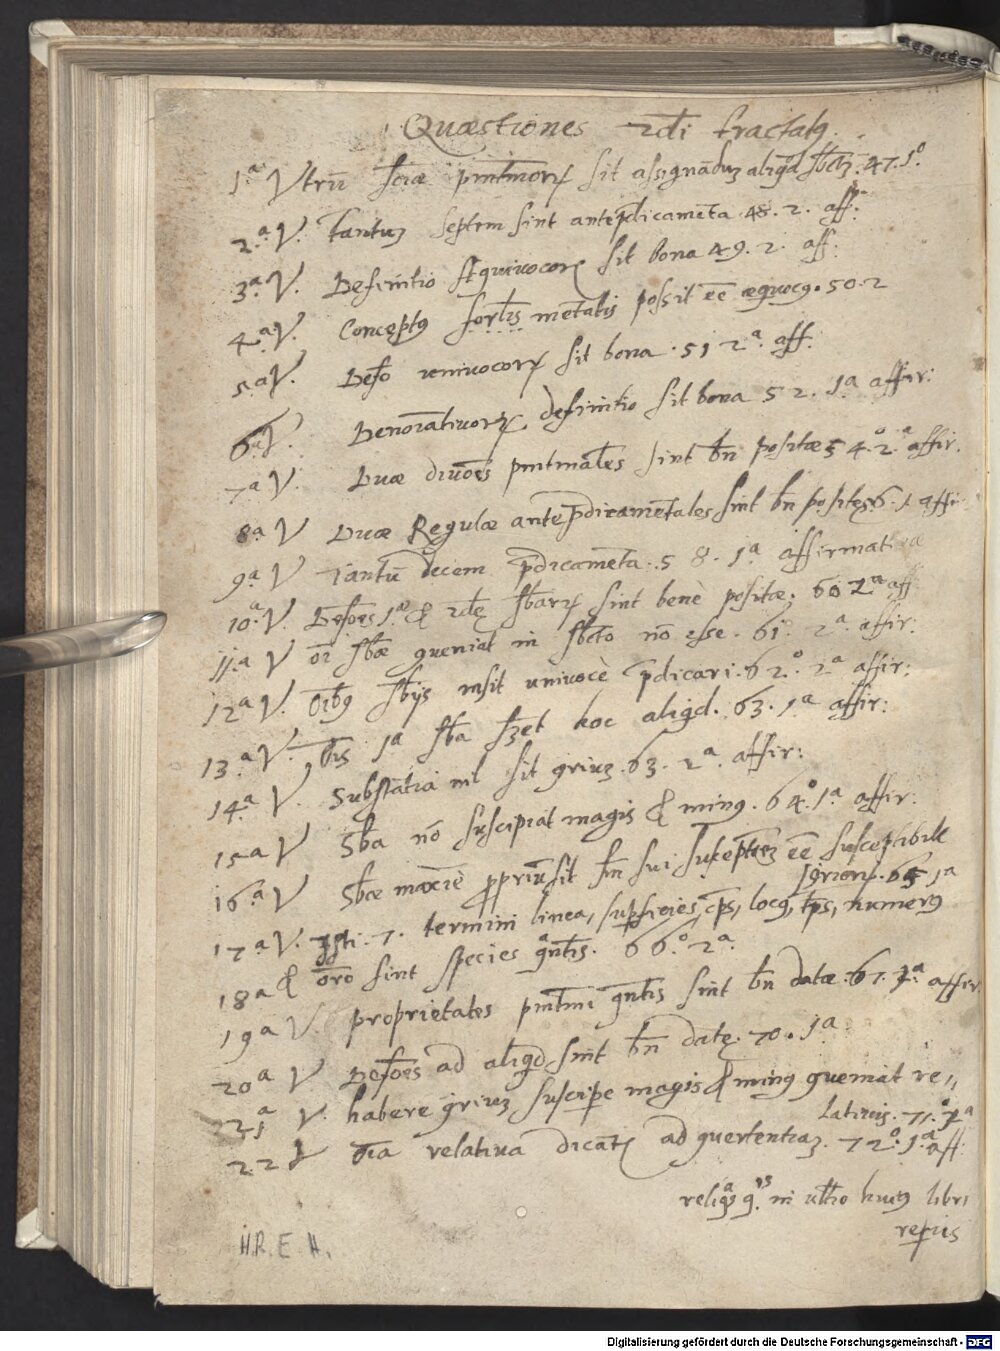 Quæstiones 2di tractatꝰ.
1ª Vtrū sciæ pntmorꝝ sit assignādū aligđ sbctū. 47. 1º
2.ª V. Tantuꝫ septem sint antep̄dicamēta 48. 2. aff:
3.ª V. Definitio Æquiuocorꝝ sit bona 49. 2. aff:
4.ª V. Conceptꝰ forlis mētalis possit ēē æquocꝰ. 50. 2
5.ª V. Defō vniuocorꝝ sit bona. 51 2ª. aff:
6ª V. Denoīatiuorꝝ definitio sit bona 52. 1ª affir:
7.ª V. Duæ diuōes pntmāles sint bn̄ positæ 54.º 2.ª affir.
8.ª V Duæ Regulæ antep̄dicamētales sint bn̄ positę. 1 affir
9.ª V Tantū decem p̄dicamēta. 58. 1ª affirmatiua
10.ª V. Defōes 1æ & 2dę sbarꝝ sint benè positæ. 60 2ª aff
11.ª V oī sbæ 9ueniat in sbcto nō esse. 61º 2ª. affir:
12ª V. Oībꝰ sbijs insit vniuocè p̄dicari. 62.º 2ª affir:
13.ª V. Oīs 1ª sba hoc aligđ. 63. 1ª affir:
14.ª V. Substātia nl sit 9riuꝫ. 63. 2ª. affir:
15ª V Sba nō suscipiat magis & minꝰ. 64º. 1ª affir:
16.ª V Sbæ maximè propriū sit sm̄ sui ēē susceptibile
9riorꝝ. 65 1ª
17ª V. 7. termini linea, supficies, cps, locꝰ, tps, numerꝰ
18ª & orō sint species qntis. 66º. 2ª.
19ª V. proprietates pntmi qntis sint bn̄ datæ. 67. 2ª affir
20ª V Defōes ad aligđ sint bn̄ datę. 70. 1ª
21ª V. habere 9riuꝫ suscipe magis & minꝰ 9ueniat re,,
latiuis. 71.º 2ª
22 V oīa relatiua dicātꝝ ad 9uertentiaꝫ. 72º. 1ª aff:
reliqꝫ in vltio huiꝰ libri
repīs
H.R.E.H.
Digitalisierung gefördert durch die Deutsche Forschungsgemeinschaft - DFG